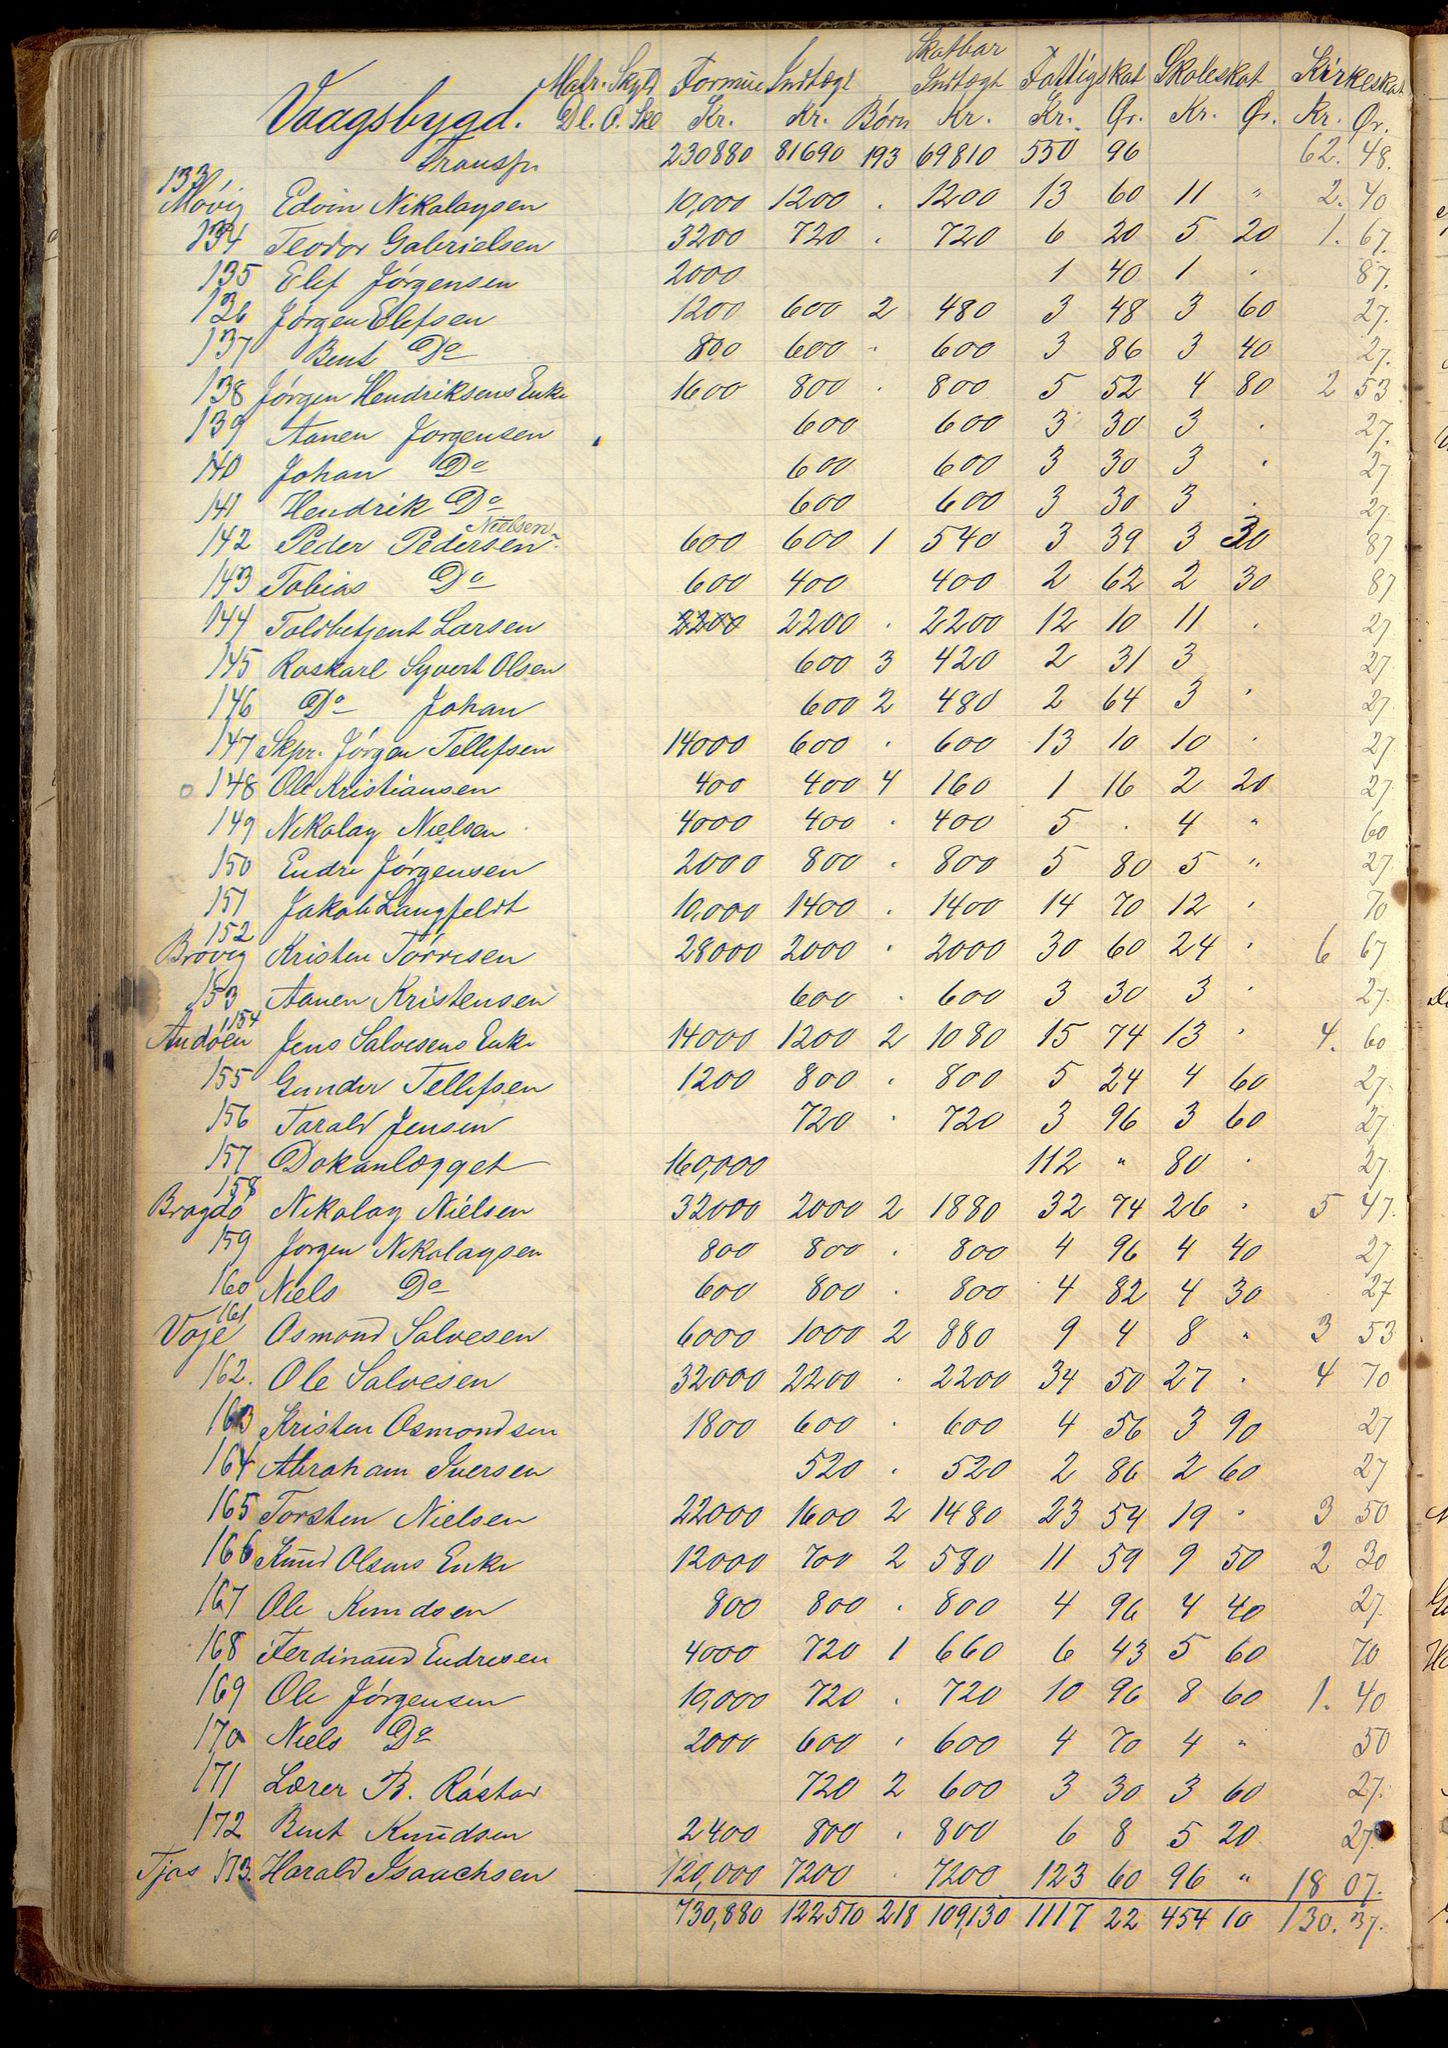 Skatbar
Vaagsbygd. Matr. Skyld Formue Indtægt Indtægt Fattigskat Skoleskat Kirkeskat
Dl. O. Ske Kr. Kr. Børn Kr. Kr. Ør. Kr. Ør. Kr. Ør.
Transp. 230880 81690 193 69810 550 96 62. 48.
133
Møvig Edvin Nikolaysen 10,000 1200 . 1200 13 60 11 " 2. 40
134 Teodor Gabrielsen 3200 720 . 720 6 20 5 20 1. 67.
135 Elef Jørgensen 2000 1 40 1 . 87.
136 Jørgen Elefsen 1200 600 2 480 3 48 3 60 27.
137 Bent Do 800 600 . 600 3 86 3 40 27.
138 Jørgen Hendriksens Enke 1600 800 . 800 5 52 4 80 2 53
139 Aanen Jørgensen 600 600 3 30 3 . 27.
140 Johan Do 600 600 3 30 3 . 27
141 Hendrik Do 600 600 3 30 3 . 27.
Nielsen
142 Peder Pedersen 600 600 1 540 3 39 3 30 87
143 Tobias Do 600 400 400 2 62 2 30 87
144 Toldbetjent Larsen 2200 2200 . 2200 12 10 11 . 27
145 Roskarl Syvert Olsen 600 3 420 2 31 3 27.
146 Do Johan 600 2 480 2 64 3 . 27.
147 Skpr. Jørgen Tellefsen 14000 600 . 600 13 10 10 . 27.
148 Ole Kristiansen 400 400 4 160 1 16 2 20 27.
149 Nikolay Nielsen 4000 400 . 400 5 . 4 " 60
150 Endre Jørgensen 2000 800 . 800 5 80 5 " 27.
151 Jakob Langfeldt 10,000 1400 . 1400 14 70 12 . 70
152
Brøvig Kristen Tørresen 28000 2000 . 2000 30 60 24 . 6 67
153 Aanen Kristensen 600 . 600 3 30 3 . 27.
154
Andøen Jens Salvesens Enke 14000 1200 2 1080 15 74 13 . 4. 60
155 Gunder Tellefsen 1200 800 . 800 5 24 4 60 27.
156 Tarald Jensen 720 . 720 3 96 3 60 27.
157 Dokanlægget 160,000 112 " 80 . 27.
158
Bragdø Nikolay Nielsen 32000 2000 2 1880 32 74 26 . 5 47.
159 Jørgen Nikolaysen 800 800 . 800 4 96 4 40 27
160 Niels Do 600 800 . 800 4 82 4 30 27
161
Voje Osmond Salvesen 6000 1000 2 880 9 4 8 " 3 53
162. Ole Salvesen 32000 2200 . 2200 34 50 27 . 4 70
163 Kristen Osmondsen 1800 600 . 600 4 56 3 90 27
164 Abraham Iversen 520 . 520 2 86 2 60 27
165 Torsten Nielsen 22000 1600 2 1480 23 54 19 . 3 50
166 Knud Olsens Enke 12000 700 2 580 11 59 9 50 2 30
167 Ole Knudsen 800 800 . 800 4 96 4 40 27.
168 Ferdinand Endresen 4000 720 1 660 6 43 5 60 70
169 Ole Jørgensen 10,000 720 . 720 10 96 8 60 1. 40
170 Niels Do 2000 600 . 600 4 70 4 " 50
171 Lærer B. Røstad 720 2 600 3 30 3 60 27.
172 Bent Knudsen 2400 800 . 800 6 8 5 20 27.
Tjos 173. Harald Isaachsen 120,000 7200 . 7200 123 60 96 " 18 07.
730,880 122510 218 109,130 1117 22 454 10 130. 37.